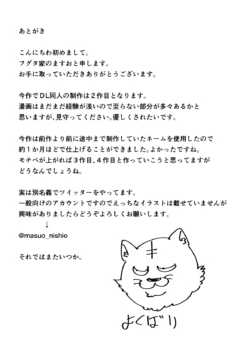 あとがき
こんにちわ初めまして。
フグタ家のますおと申します。
お手に取っていただきありがとうございます。
今作でDL同人の制作は２作目となります。
漫画はまだまだ経験が浅いので至らない部分が多々あるかと
思いますが、見守ってください。優しくされたいです。
今作は前作より前に途中まで制作していたネームを使用したので
約１か月ほどで仕上げることができました。よかったですね。
モチベが上がれば３作目、４作目と作っていこうと思ってますが
どうなんでしょうね。
実は別名義でツイッターをやってます。
一般向けのアカウントですのでえっちなイラストは載せていませんが
興味がありましたらどうぞよろしくお願いします。
↓
@masuo_nishio
それではまたいつか。
よくばり